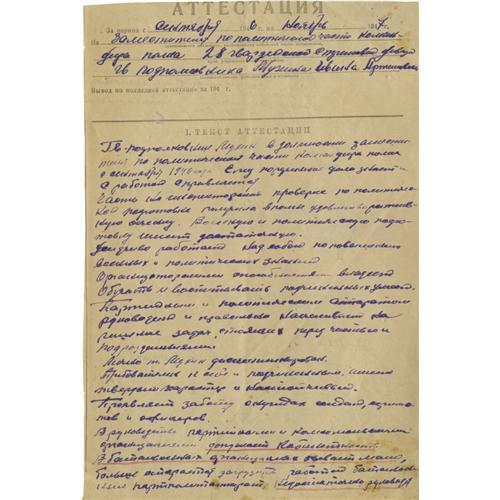 АТТЕСТАЦИЯ
За период с сентября 6. по ноябрь 194 7
На Заместителя по политической части коман-
дира полка 28 гвардейской стрелковой дивиз
Гв подполковника Мухина
Вывод по последней аттестации за 194 г.
I. ТЕКСТ АТТЕСТАЦИИ
Гв. подполковник Мухин в должности замести-
теля по политической части командира полка
с сентября 1946 года. Свои
С работой справляется
Часть на инспекторской проверке по политичес-
кой подготовке получила вполне удовлетворитель-
ную оценку. Военную и политическую подго-
товку имеет достаточную.
работает над собой по повышению
военных и политических знаний
Организаторскими способностями владеет
Обучать и воспитывать подчиненных умеет.
Партийным и политическим аппаратом
руководит и правильно нацеливает на
решение задач, стоящих перед частью и
подразделениями.
Лично т. Мухин дисциплинирован.
Требователен к себе и подчиненным, имеет
твердый характер и настойчивый.
Проявляет заботу о нуждах солдат, сержан-
тов и офицеров.
В руководстве партийными и комсомольскими
организациями допускает кабинетность
В батальонных организациях бывает мало,
больше аппарата загружен работой батальон-